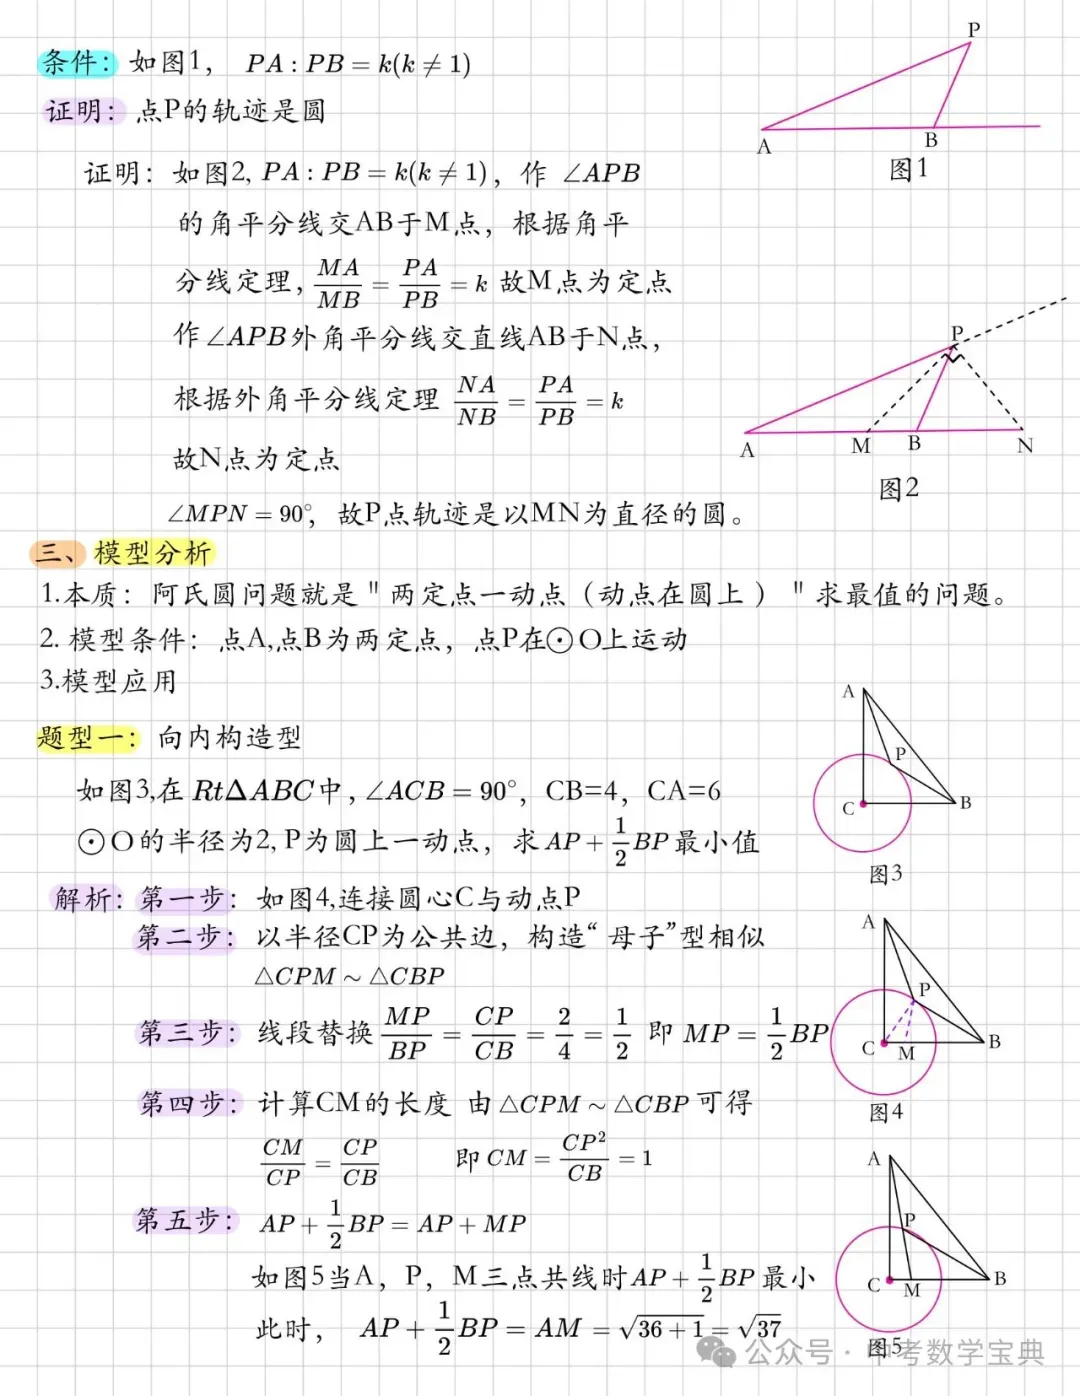 条件： 如图1， PA : PB = k(k ≠ 1)
证明： 点P的轨迹是圆
P
A
B
图1
证明：如图2, PA : PB = k(k ≠ 1)，作 ∠APB
的角平分线交AB于M点，根据角平
分线定理，MA/MB = PA/PB = k 故M点为定点
作∠APB外角平分线交直线AB于N点，
根据外角平分线定理 NA/NB = PA/PB = k
故N点为定点
∠MPN = 90°，故P点轨迹是以MN为直径的圆。
P
A
M
B
N
图2
三、模型分析
1.本质：阿氏圆问题就是"两定点一动点（动点在圆上 ） "求最值的问题。
2. 模型条件：点A,点B为两定点，点P在⊙O上运动
3.模型应用
题型一： 向内构造型
如图3,在 Rt∆ABC中，∠ACB = 90°，CB=4，CA=6
⊙O的半径为2, P为圆上一动点，求 AP + 1/2 BP 最小值
A
P
C
B
图3
解析：第一步：如图4,连接圆心C与动点P
第二步：以半径CP为公共边，构造“母子”型相似
△CPM ~ △CBP
第三步：线段替换 MP/BP = CP/CB = 2/4 = 1/2 即 MP = 1/2 BP
第四步：计算CM的长度 由△CPM ~ △CBP可得
CM/CP = CP/CB 即 CM = CP²/CB = 1
A
P
C
M
B
图4
第五步： AP + 1/2 BP = AP + MP
如图5当A，P，M三点共线时AP + 1/2 BP 最小
此时， AP + 1/2 BP = AM = √36 + 1 = √37
A
P
C
M
B
图5
公众号 · 中考数学宝典